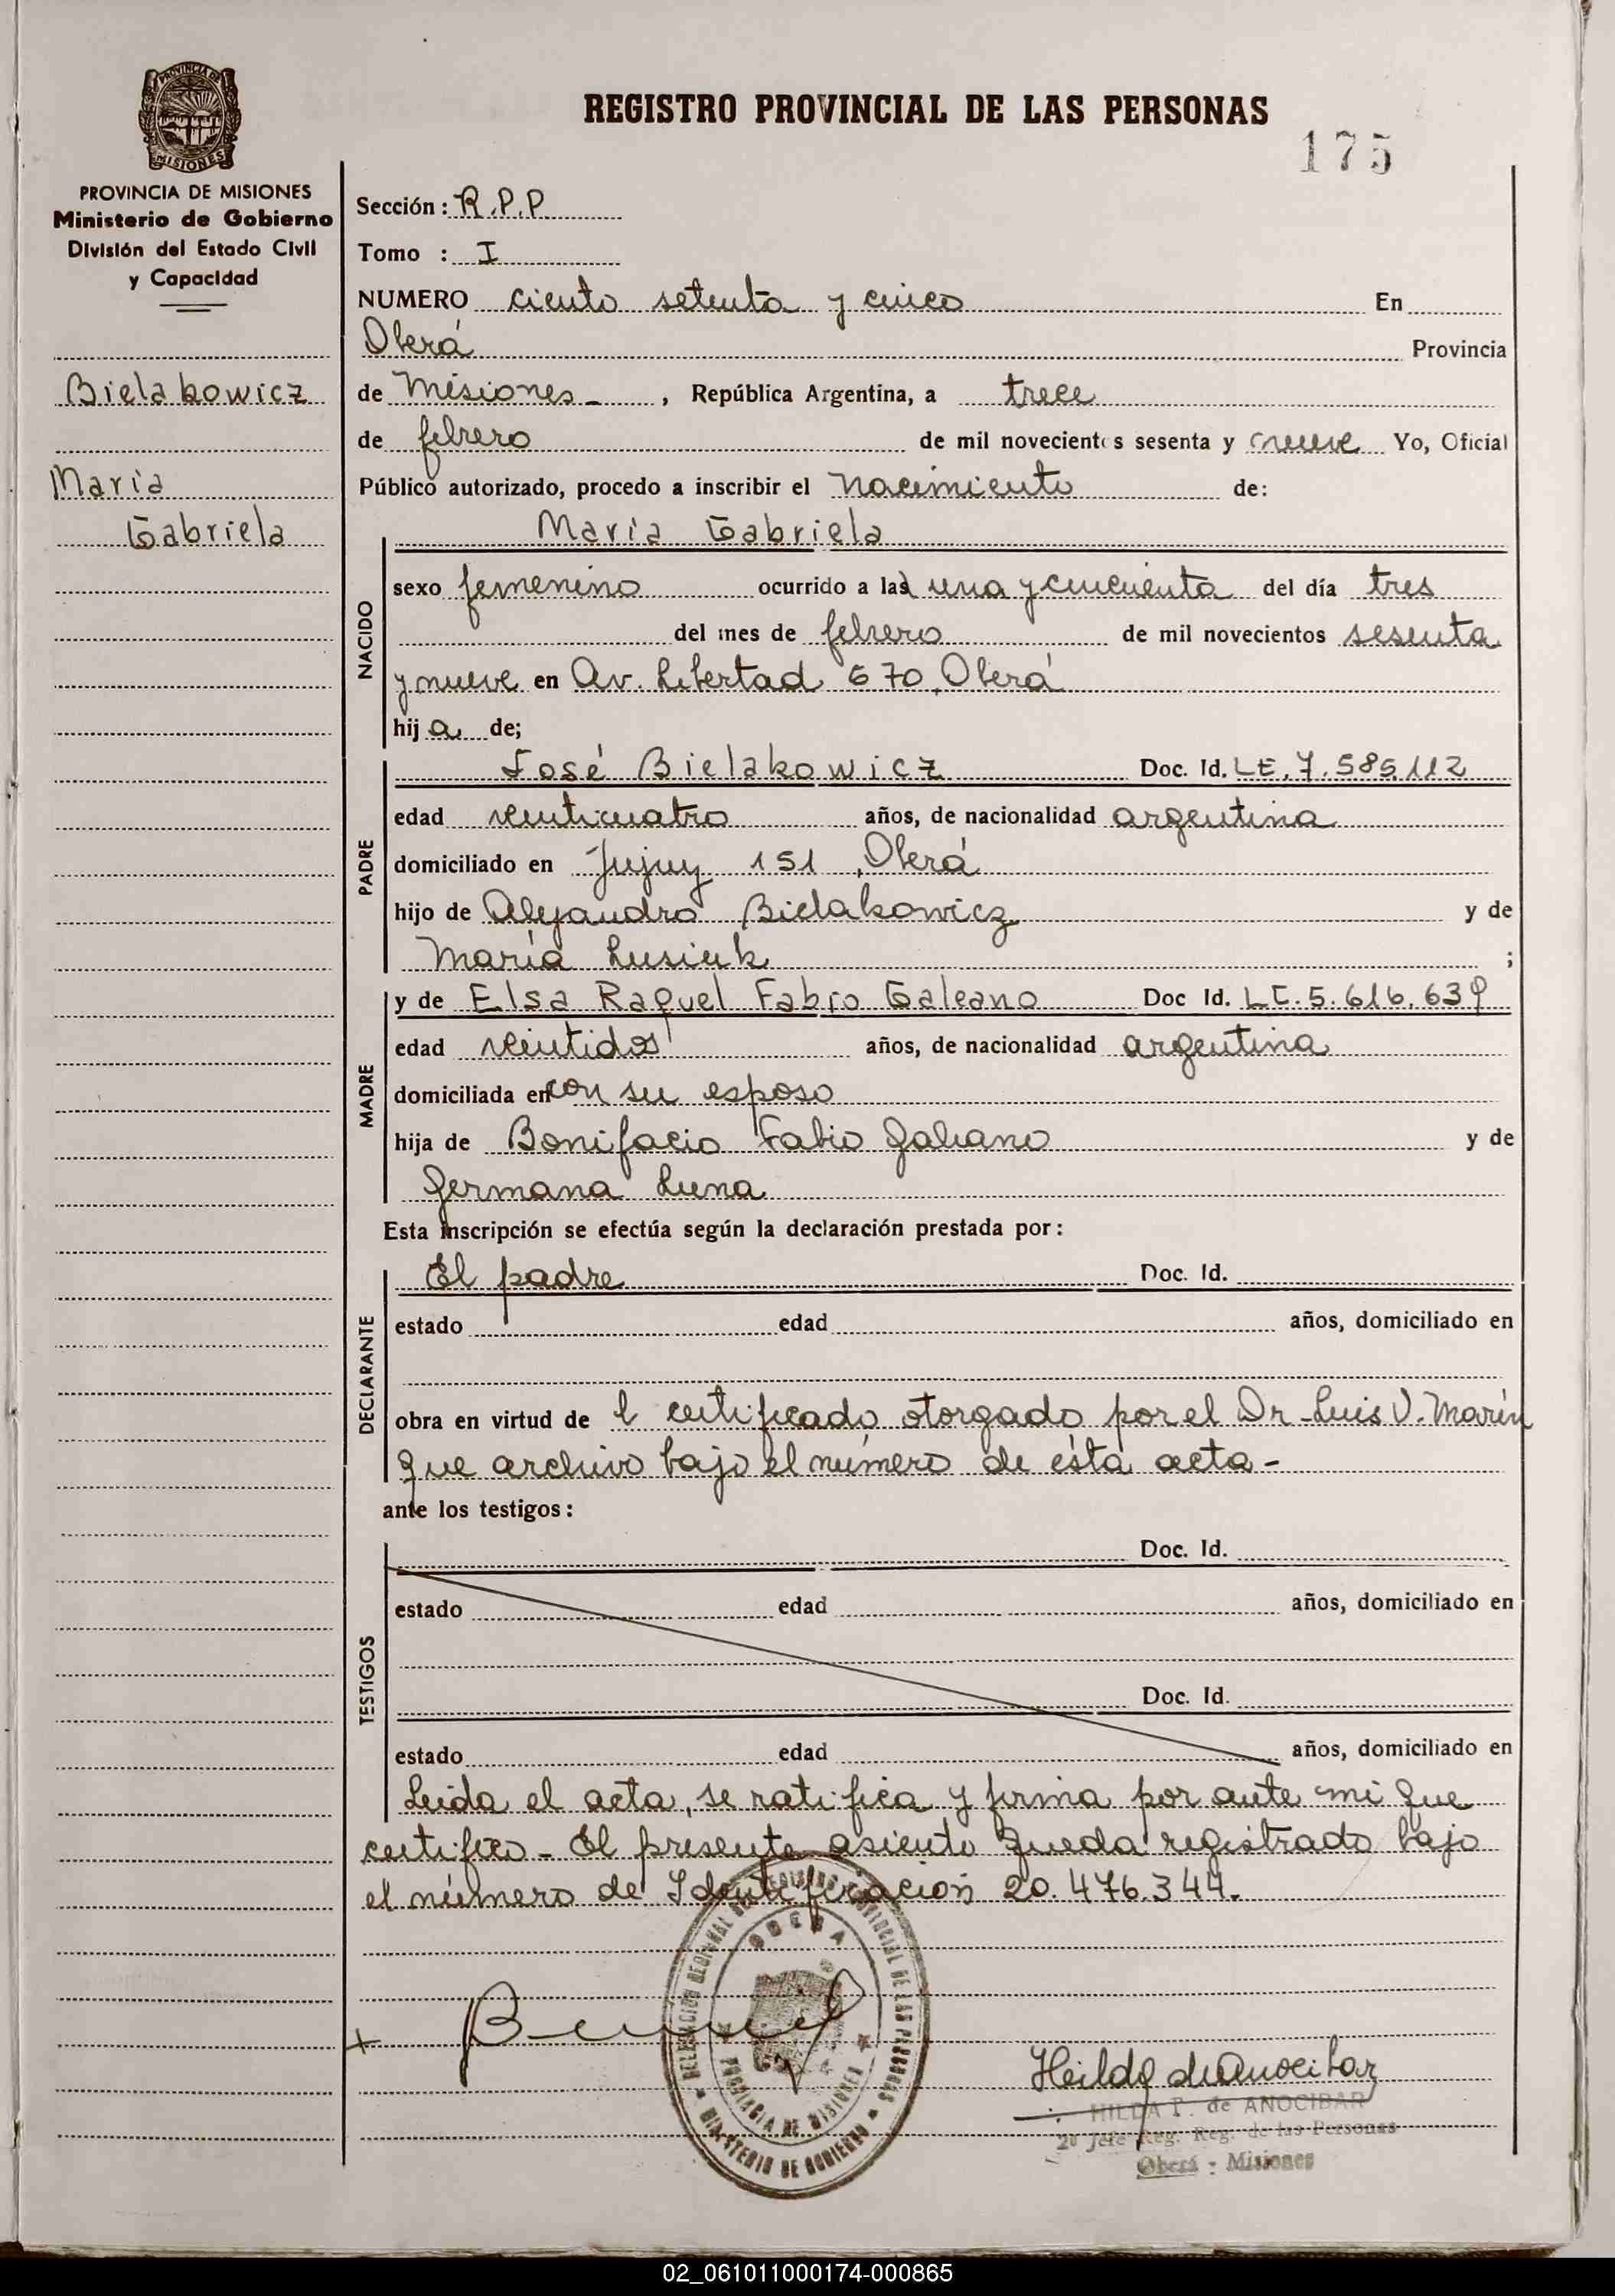 PROVINCIA DE
MISIONES
REGISTRO PROVINCIAL DE LAS PERSONAS
175
PROVINCIA DE MISIONES
Ministerio de Gobierno
División del Estado Civil
y Capacidad
Bielakowicz
María
Gabriela
Sección: R.P.P
Tomo : I
NUMERO ciento setenta y cinco En
Oberá Provincia
de Misiones - , República Argentina, a trece
de febrero de mil novecientos sesenta y nueve Yo, Oficial
Público autorizado, procedo a inscribir el Nacimiento de:
NACIDO
María Gabriela
sexo femenino ocurrido a las una y cincuenta del día tres
del mes de febrero de mil novecientos sesenta
y nueve en Av. Libertad 670, Oberá
hij a de;
PADRE
José Bielakowicz Doc. Id. LE. 7.585.112
edad venticuatro años, de nacionalidad argentina
domiciliado en Jujuy 151, Oberá
hijo de Alejandro Bielakowicz y de
María Lusiuk ;
MADRE
y de Elsa Raquel Fabio Galeano Doc Id. LC. 5.616.639
edad veintidos años, de nacionalidad argentina
domiciliada en con su esposo
hija de Bonifacio Fabio Galeano y de
Germana Luna
Esta inscripción se efectúa según la declaración prestada por:
DECLARANTE
El padre Doc. Id.
estado edad años, domiciliado en
obra en virtud de l certificado otorgado por el Dr. Luis V. Marín
que archivo bajo el número de ésta acta -
ante los testigos:
TESTIGOS
Doc. Id.
estado edad años, domiciliado en
Doc. Id.
estado edad años, domiciliado en
Leida el acta, se ratifica y firma por ante mi que
certifico - El presente asiento queda registrado bajo
el número de Identificación 20.476.344.
DELEGACION REGIONAL DEL REGISTRO PROVINCIAL DE LAS PERSONAS
OBERA
PROVINCIA DE MISIONES
MINISTERIO DE GOBIERNO
Hilda de Anocibar
HILDA P. de ANOCIBAR
2º Jefe Reg. Reg. de las Personas
Oberá - Misiones
02_061011000174-000865